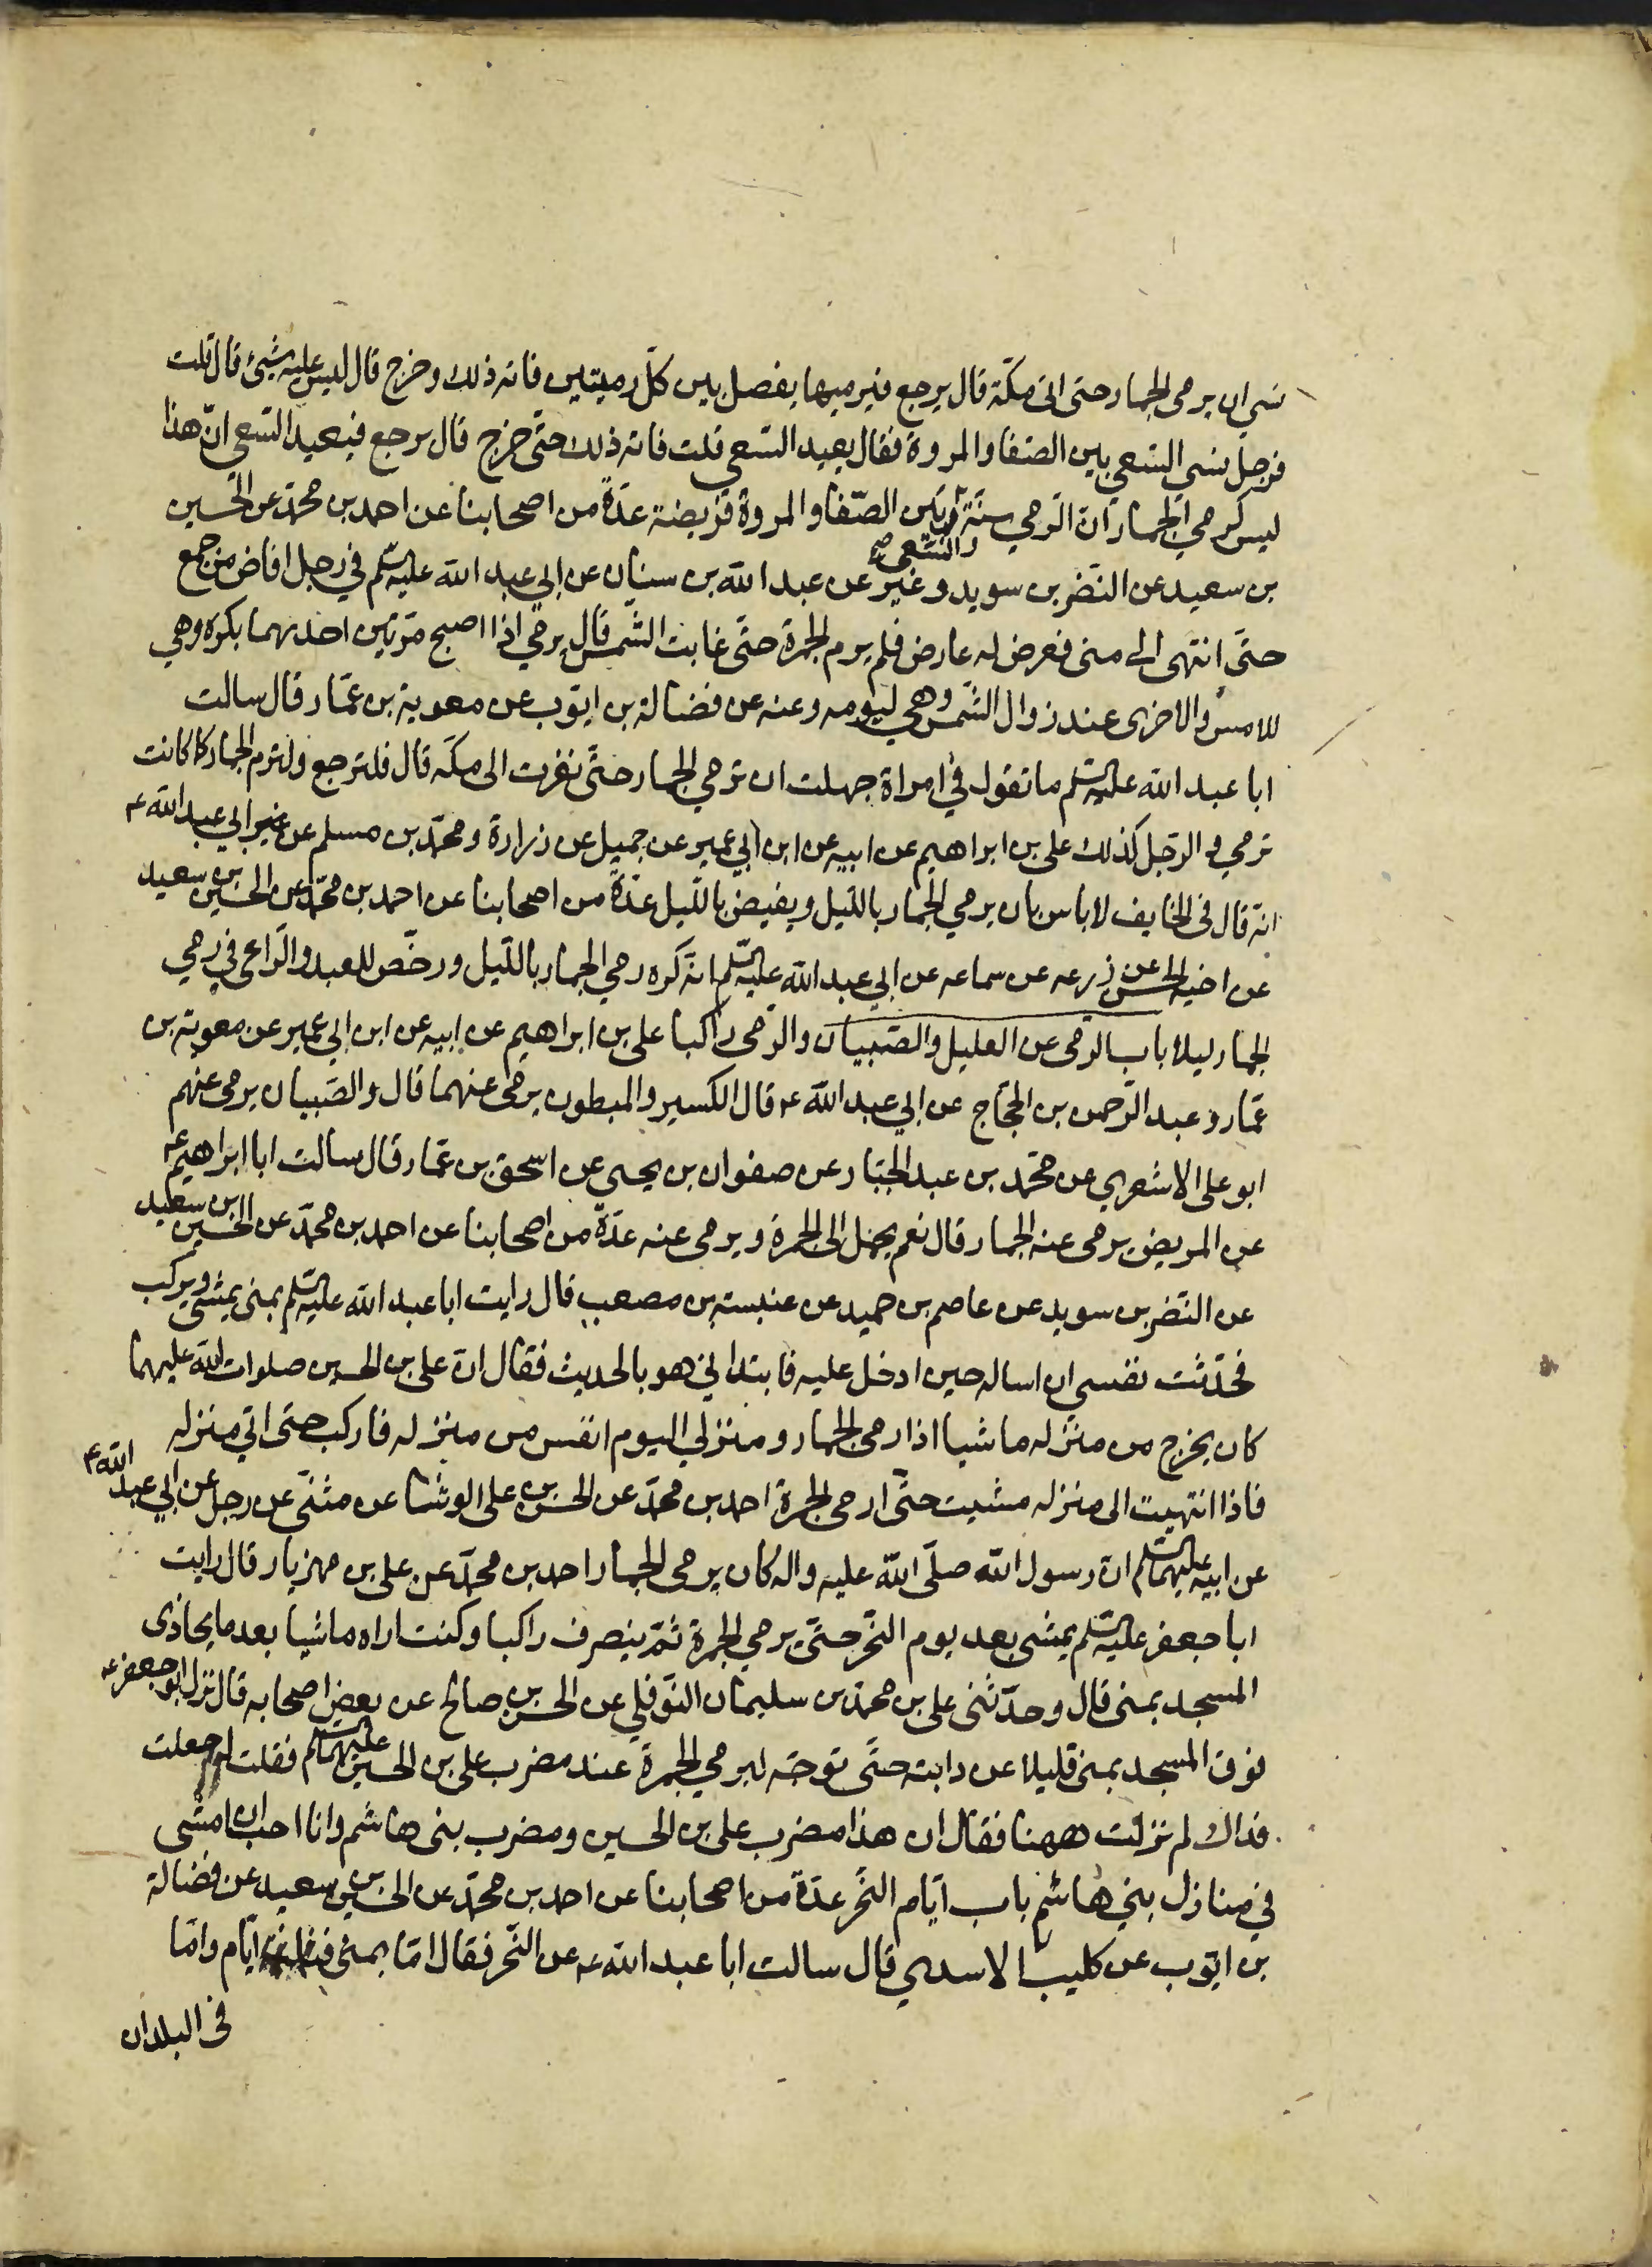 نسي ان يرمي الجمار حتى اتى مكّة قال يرجع فيرميها يفصل بين كلّ رميتين فاته ذلك وخرج قال ليس عليه شيئ قال قلت
فرجل نسي السّعي بين الصّفا والمروة فقال يعيد السّعي قلت فاته ذلك حتّى خرج قال يرجع فيعيد السّعي انّ هذا
ليس كرمي الجمار انّ الرّمي سنّة والسّعي بين الصّفا والمروة فريضة عدّة من اصحابنا عن احمد بن محمّد عن الحسين
بن سعيد عن النّضر بن سويد وغير عن عبد الله بن سنان عن ابي عبد الله عليه السّلم في رجل افاض من جمع
حتّى انتهى الى منى فعرض له عارض فلم يرم الجمرة حتّى غابت الشّمس قال يرمي اذا اصبح مرّتين احدىهما بكرة وهي
للامس والاخرى عند زوال الشّمس وهي ليومه وعنه عن فضالة بن ايّوب عن معوية بن عمّار قال سالت
ابا عبد الله عليه السّلم ما تقول في امراة جهلت ان ترمي الجمار حتّى نفرت الى مكّه قال فلترجع ولترم الجمار كما كانت
ترمي والرّجل كذلك على بن ابراهيم عن ابيه عن ابن ابي عمير عن جميل عن زرارة ومحمّد بن مسلم عن ابي عبد الله ع
انّه قال فى الخايف لا باس بان يرمي الجمار باللّيل ويفيض باللّيل عدّة من اصحابنا عن احمد بن محمّد عن الحسين بن سعيد
عن اخيه الحسن عن زرعه عن سماعه عن ابي عبد الله عليه السّلم انّه كره رمي الجمار باللّيل ورخّص للعبد والرّاعي في رمي
الجمار ليلا باب الرّمى عن العليل والصّبيان والرّمى راكبا على بن ابراهيم عن ابيه عن ابن ابي عمير عن معوية بن
عمّار وعبد الرّحمن بن الحجّاج عن ابي عبد الله ع قال الكسير والمبطون يرمى عنهما قال والصّبيان يرمى عنهم
ابو على الاشعري عن محمّد بن عبد الجبّار عن صفوان بن يحيى عن اسحق بن عمّار قال سالت ابا ابراهيم ع
عن المريض يرمى عنه الجمار قال نعم يحمل الى الجمرة ويرمى عنه عدّة من اصحابنا عن احمد بن محمّد عن الحسين بن سعيد
عن النّضر بن سويد عن عاصم بن حميد عن عنبسة بن مصعب قال رايت ابا عبد الله عليه السّلم بمنى يمشي ويركب
فحدّثت نفسي ان اساله حين ادخل عليه فابتدانى هو بالحديث فقال انّ على بن الحسين صلوات الله عليهما
كان يخرج من منزله ماشيا اذا رمى الجمار ومنزلي اليوم انفس من منزله فاركب حتى اتي منزله
فاذا انتهيت الى منزله مشيت حتّى ارمى الجمرة احمد بن محمّد عن الحسن بن على الوشّا عن مثنّى عن رجل عن ابي عبد الله ع
عن ابيه عليهما السّلم انّ رسول الله صلّى الله عليه واله كان يرمى الجمار احمد بن محمّد عن على بن مهزيار قال رايت
ابا جعفر عليه السّلم يمشى بعد يوم النّحر حتّى يرمي الجمرة ثمّ ينصرف راكبا وكنت اراه ماشيا بعد ما يحاذى
المسجد بمنى قال وحدّثنى على بن محمّد بن سليمان النّوفلي عن الحسن بن صالح عن بعض اصحابه قال نزل ابو جعفر ع
فوق المسجد بمنى قليلا عن دابته حتّى توجّه ليرمي الجمرة عند مضرب على بن الحسين عليهما السّلم فقلت له جعلت
فداك لم نزلت ههنا فقال ان هذا مضرب على بن الحسين ومضرب بنى هاشم وانا احبّ ان امشى
في منازل بني هاشم باب ايّام النّحر عدّة من اصحابنا عن احمد بن محمّد عن الحسين بن سعيد عن فضالة
بن ايّوب عن كليب الاسدي قال سالت ابا عبد الله ع عن النّحر فقال امّا بمنى ايّام وامّا
فى البلدان